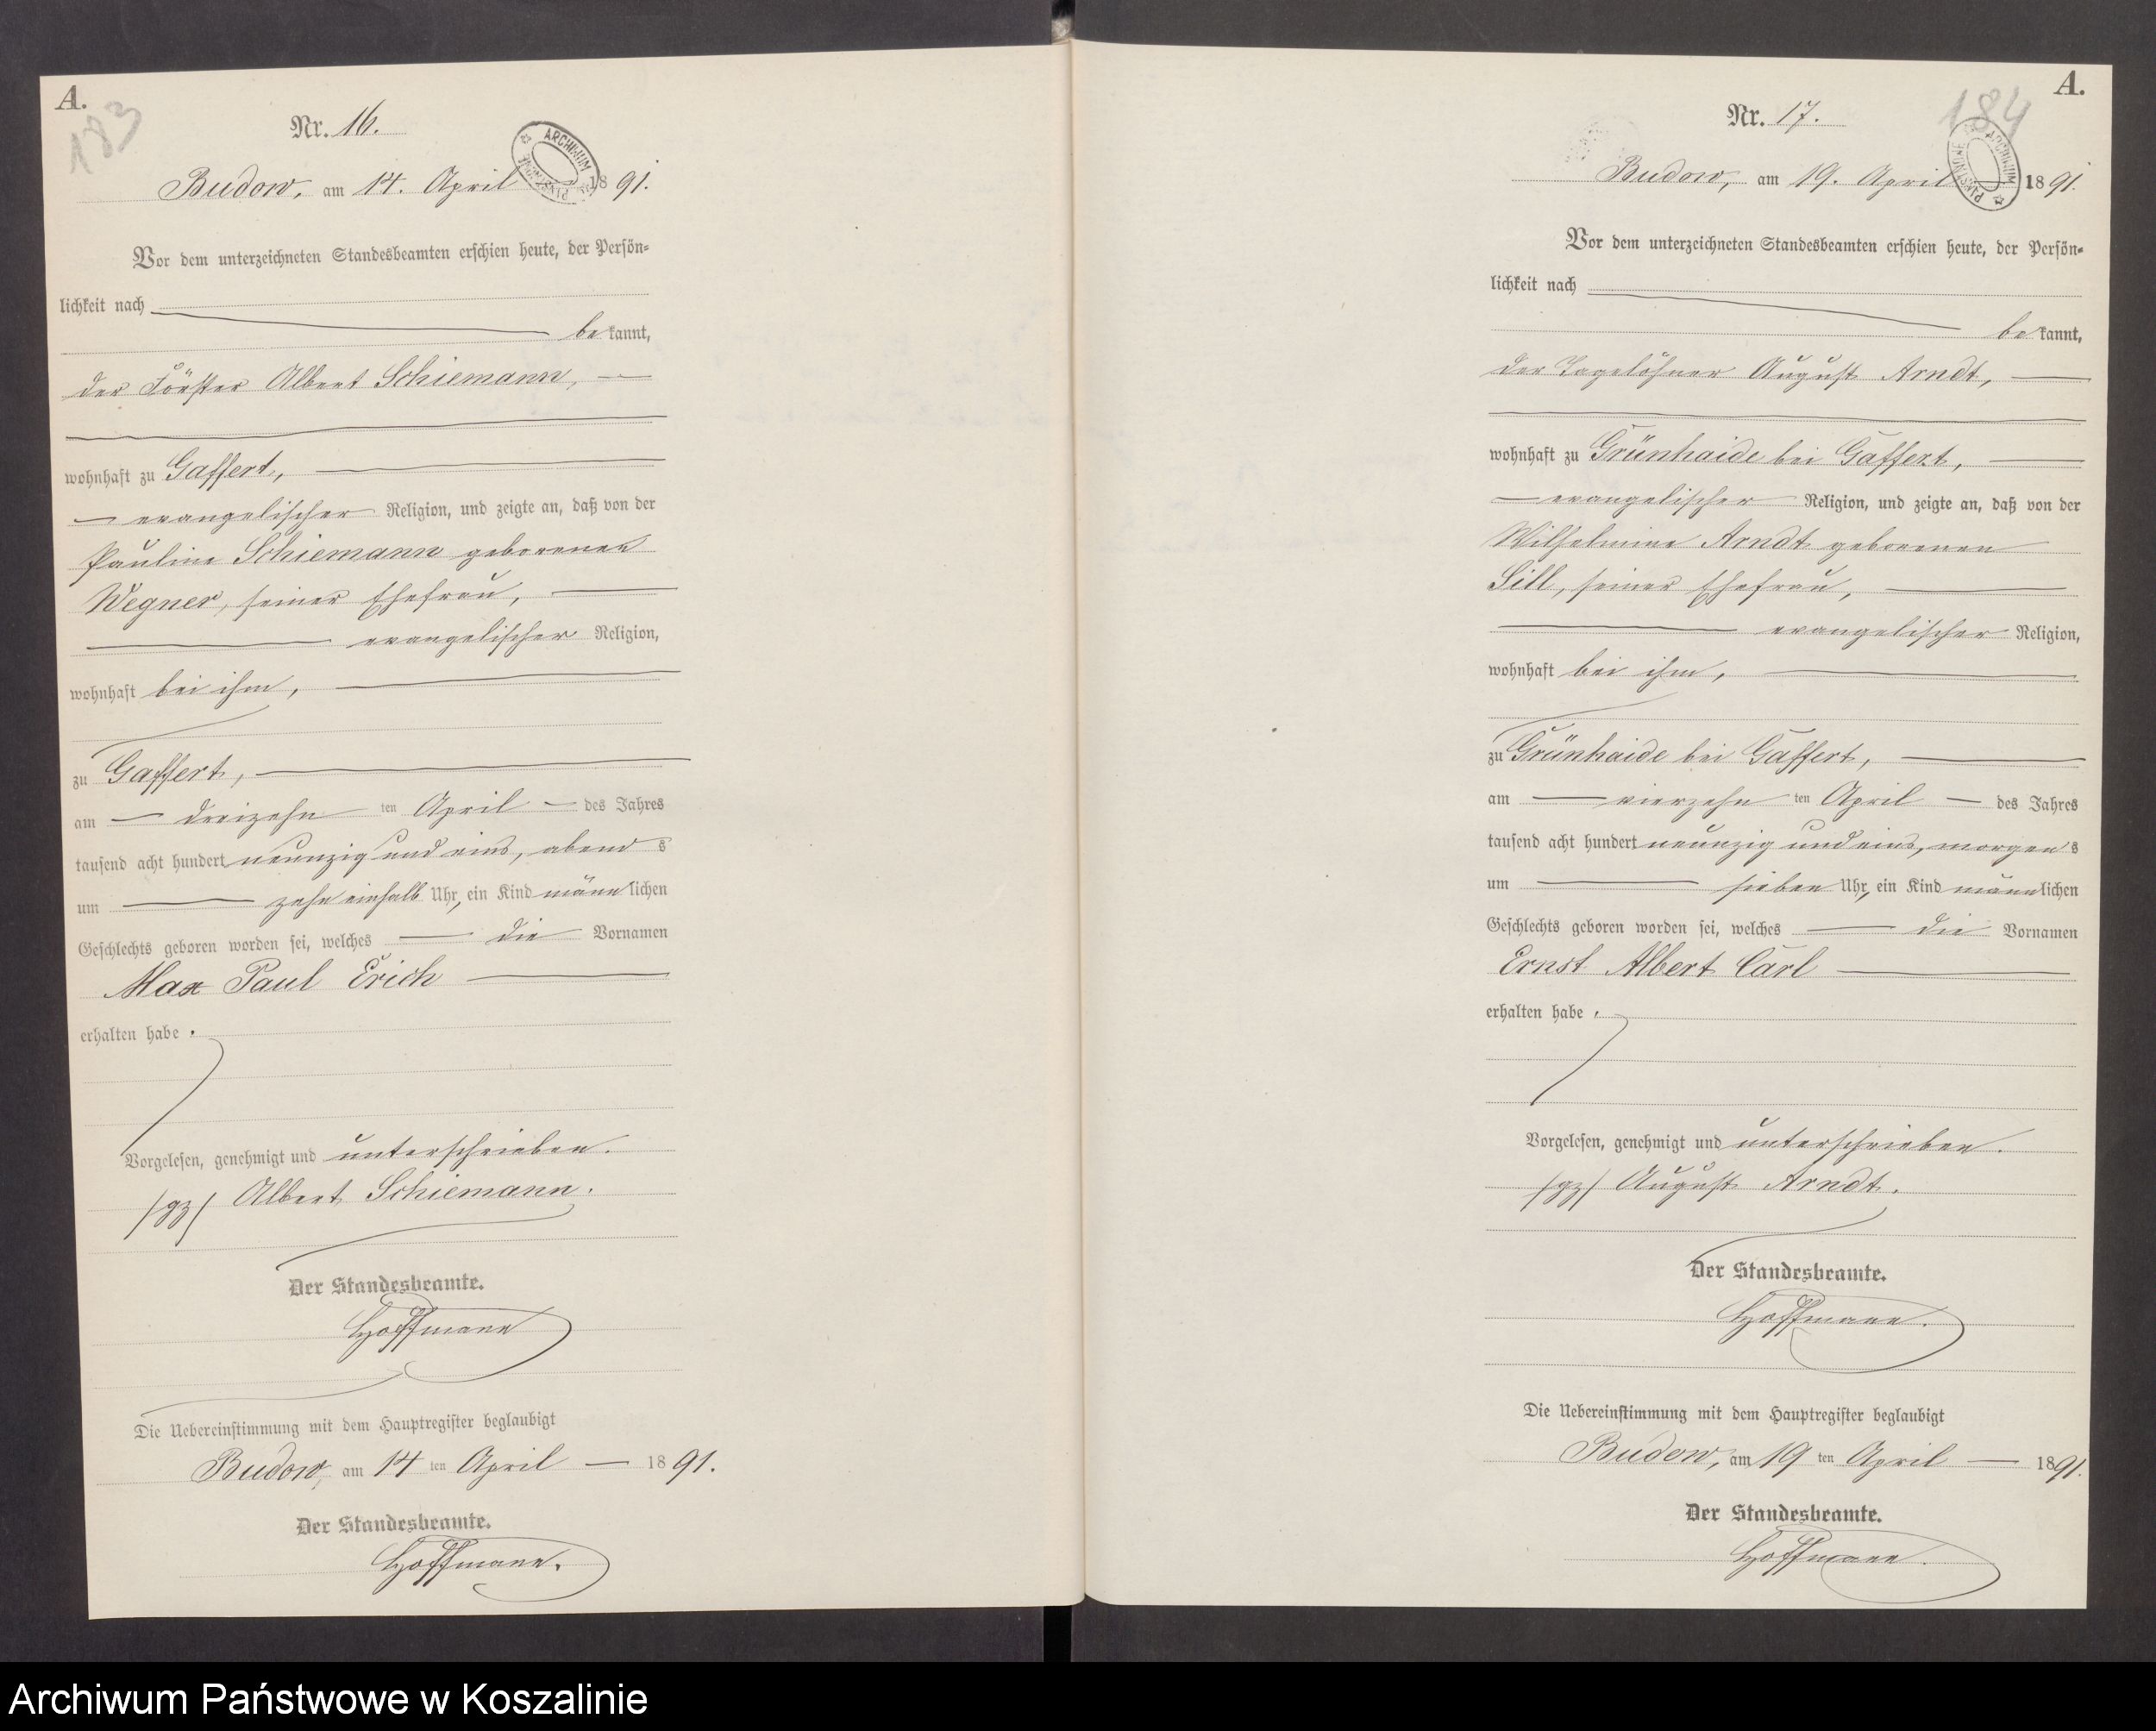 A.
183
Nr. 16.
ARCHIWUM PAŃSTWOWE
Budow, am 14. April 1891.
Vor dem unterzeichneten Standesbeamten erschien heute, der Persön-
lichkeit nach
bekannt,
der Förster Albert Schiemann,
wohnhaft zu Gaffert,
evangelischer Religion, und zeigte an, daß von der
Pauline Schiemann geborenen
Wegner, seiner Ehefrau,
evangelischer Religion,
wohnhaft bei ihm,
zu Gaffert,
am dreizehn ten April des Jahres
tausend acht hundert neunzig und eins, abends
um zehn einhalb Uhr, ein Kind männlichen
Geschlechts geboren worden sei, welches die Vornamen
Max Paul Erich
erhalten habe.
Vorgelesen, genehmigt und unterschrieben.
/gz/ Albert Schiemann.
Der Standesbeamte.
Hoffmann
Die Uebereinstimmung mit dem Hauptregister beglaubigt
Budow, am 14 ten April 1891.
Der Standesbeamte.
Hoffmann.
A.
184
Nr. 17.
ARCHIWUM PAŃSTWOWE
Budow, am 19. April 1891.
Vor dem unterzeichneten Standesbeamten erschien heute, der Persön-
lichkeit nach
bekannt,
der Tagelöhner August Arndt,
wohnhaft zu Grünhaide bei Gaffert,
evangelischer Religion, und zeigte an, daß von der
Wilhelmine Arndt geborenen
Sill, seiner Ehefrau,
evangelischer Religion,
wohnhaft bei ihm,
zu Grünhaide bei Gaffert,
am vierzehn ten April des Jahres
tausend acht hundert neunzig und eins, morgens
um sieben Uhr, ein Kind männlichen
Geschlechts geboren worden sei, welches die Vornamen
Ernst Albert Carl
erhalten habe.
Vorgelesen, genehmigt und unterschrieben.
/gz/ August Arndt.
Der Standesbeamte.
Hoffmann.
Die Uebereinstimmung mit dem Hauptregister beglaubigt
Budow, am 19 ten April 1891.
Der Standesbeamte.
Hoffmann.
Archiwum Państwowe w Koszalinie